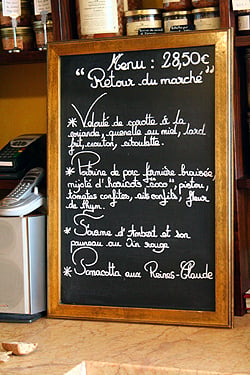 Menu : 28,50€
"Retour du marché"
* Velouté de carotte à la
coriande, quenelle au miel, lard
frit, crouton, ciboulette.
* Poitrine de porc fermière braisée,
mijoté d'haricots "coco", pistou,
tomates confites, ails confits, fleur
de thym.
* Fourme d'Ambert et son
panneau au vin rouge
* Panacotta aux Reines-Claude